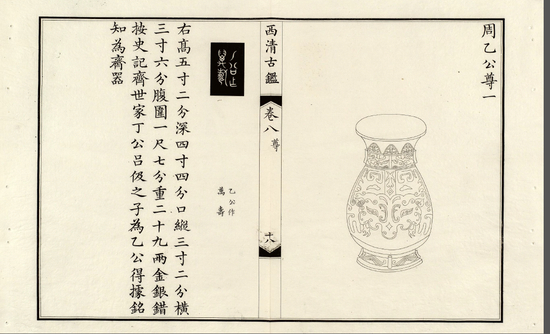 周乙公尊一
西清古鑑
卷八
尊
十八
乙公作
萬壽
右高五寸二分深四寸四分口縱三寸二分橫
三寸六分腹圍一尺七分重二十九兩金銀錯
按史記齊世家丁公呂伋之子為乙公得據銘
知為齊器